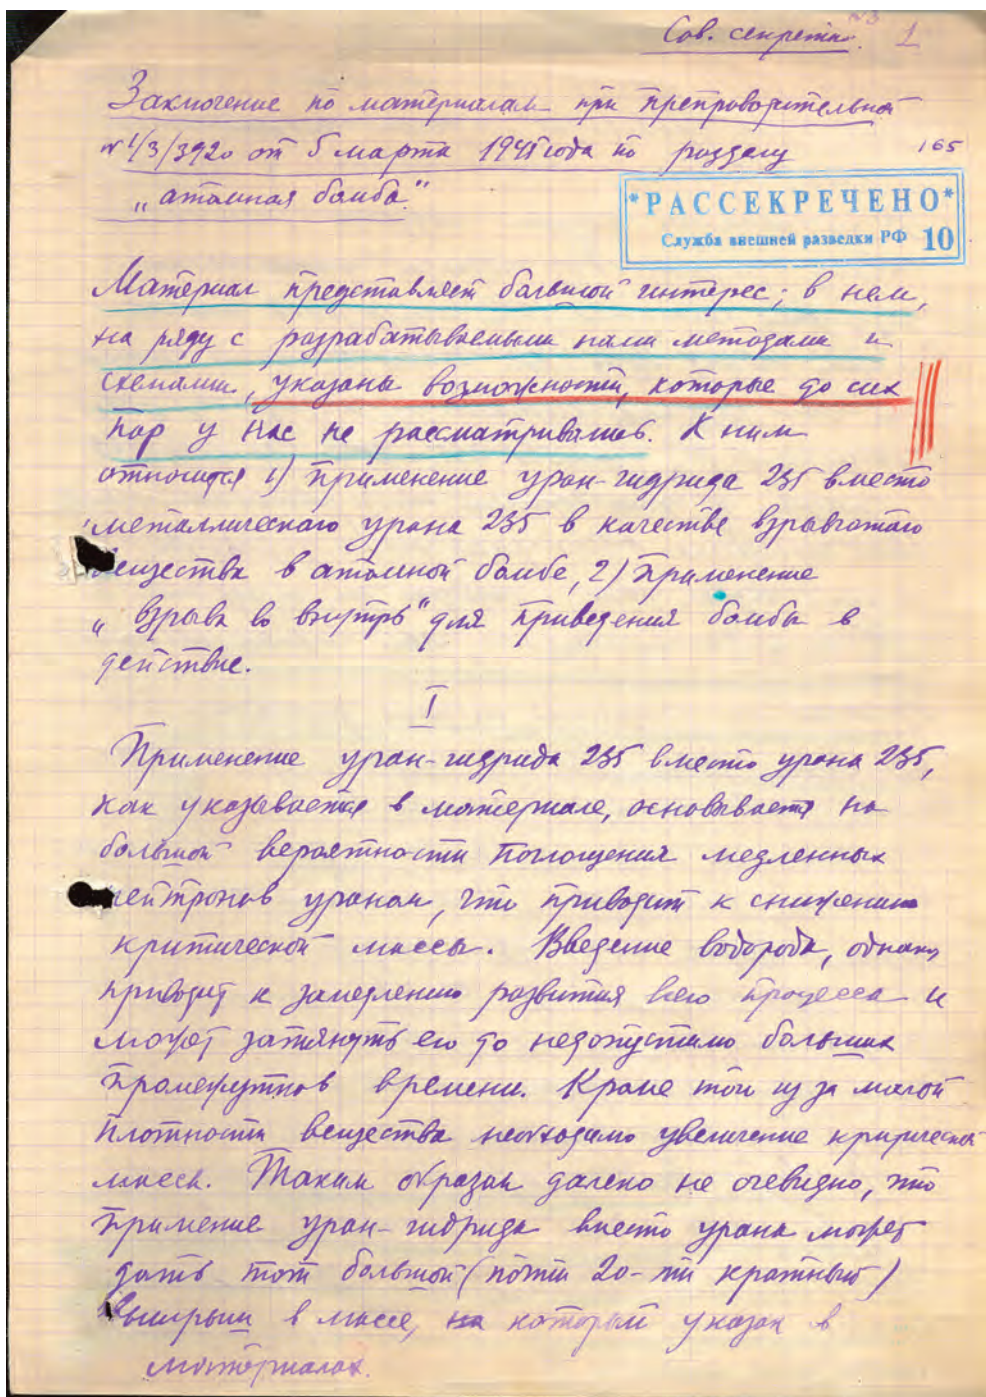 №3
Сов. секретн. 1
Заключение по материалам при препроводительной
№ 1/3/3920 от 5 марта 1945 года по разделу
165
„атомная бомба".
*РАССЕКРЕЧЕНО*
Служба внешней разведки РФ 10
Материал представляет большой интерес; в нем,
на ряду с разрабатываемыми нами методами и
схемами, указаны возможности, которые до сих
пор у нас не рассматривались. К ним
относится 1) применение уран-гидрида 235 вместо
металлического урана 235 в качестве взрывчатого
вещества в атомной бомбе, 2) применение
„взрыва во внутрь" для приведения бомбы в
действие.
I
Применение уран-гидрида 235 вместо урана 235,
как указывается в материале, основывается на
большой вероятности поглощения медленных
нейтронов ураном, что приводит к снижению
критической массы. Введение водорода, однако,
приводит к замедлению развития всего процесса и
может затянуть его до недопустимо больших
промежутков времени. Кроме того из за малой
плотности вещества необходимо увеличение критической
массы. Таким образом далеко не очевидно, что
применение уран-гидрида вместо урана может
дать тот большой (почти 20-ти кратный)
выигрыш в массе, на который указан в
материалах.